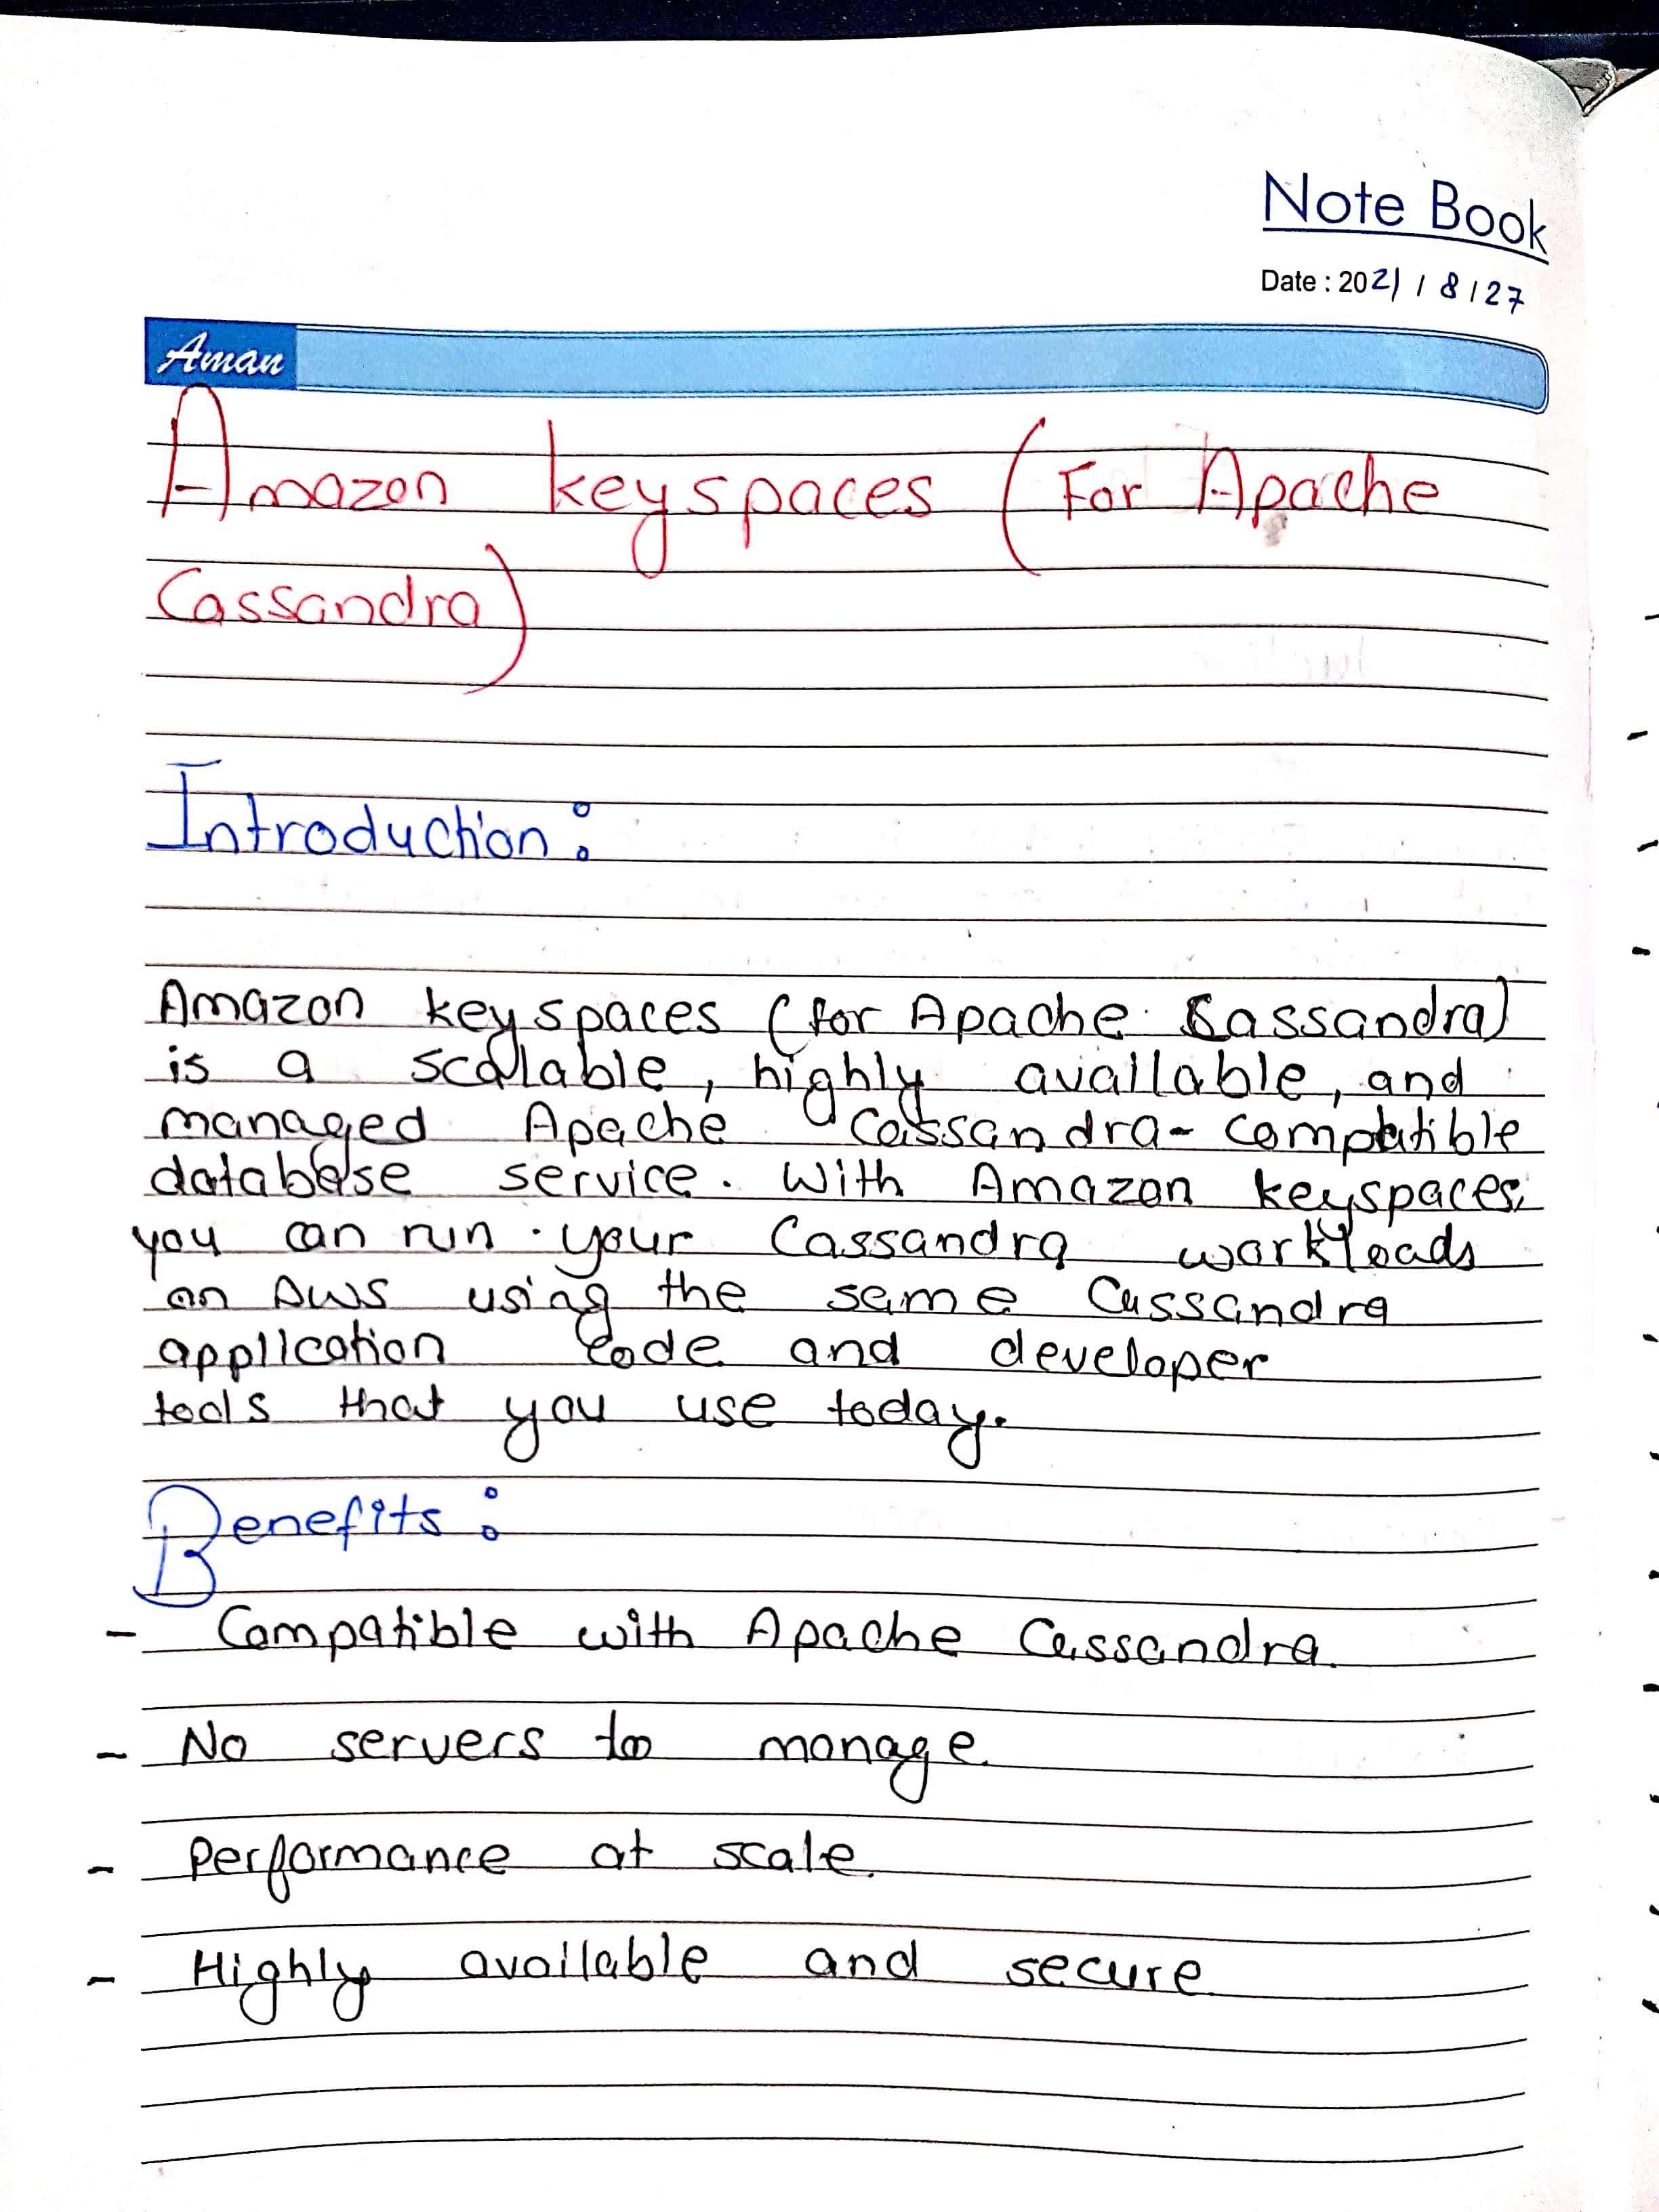 Note Book
Date : 2021 / 8 / 27
Aman
Amazon keyspaces (For Apache
Cassandra)
Introduction:
Amazon keyspaces (for Apache Cassandra)
is a scalable, highly available, and
managed Apache Cassandra- compatible
database service. With Amazon keyspaces,
you can run your Cassandra workloads
on AWS using the same Cassandra
application code and developer
tools that you use today.
Benefits:
- Compatible with Apache Cassandra.
- No servers to manage.
- Performance at scale.
- Highly available and secure